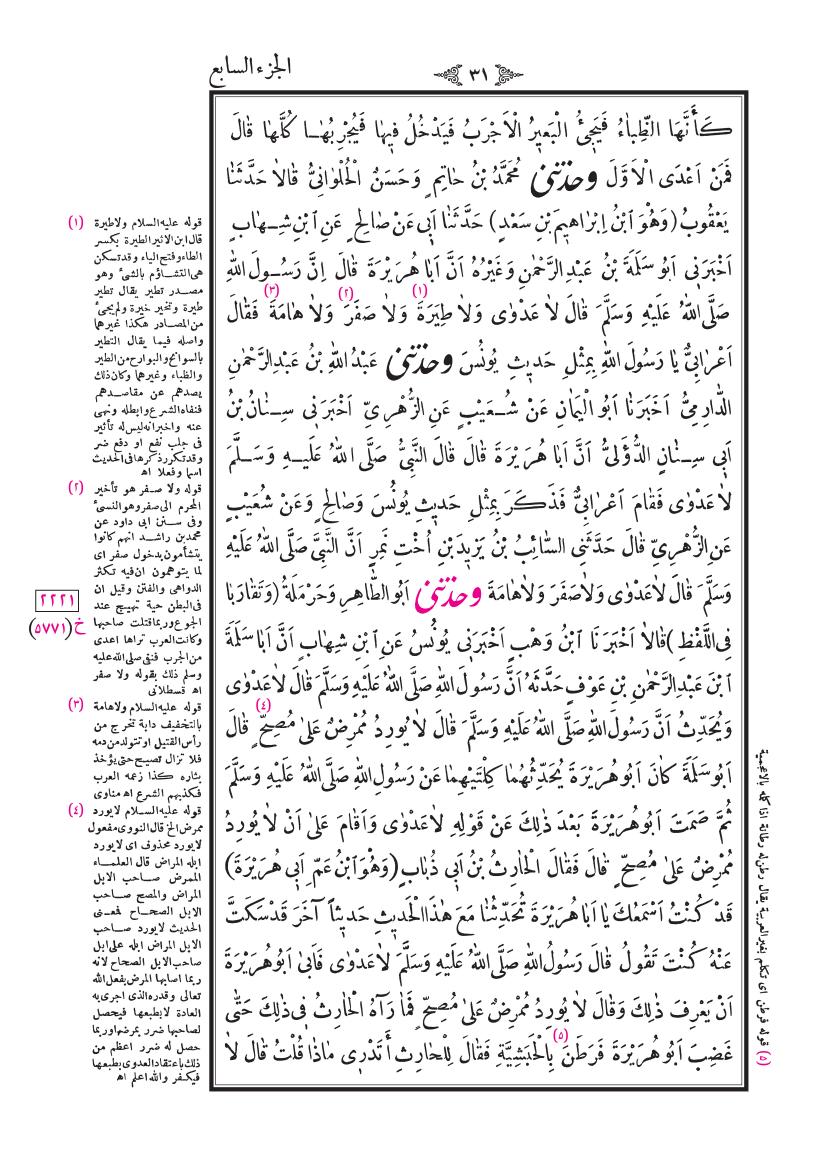 الجزء السابع
٣١
كَأَنَّهَا الظِّبَاءُ فَيَجِيءُ الْبَعِيرُ الْاَجْرَبُ فَيَدْخُلُ فِيهَا فَيُجْرِبُهَا كُلَّهَا قَالَ
فَمَنْ اَعْدَى الْاَوَّلَ وحدثنى مُحَمَّدُ بْنُ حَاتِمٍ وَحَسَنٌ الْحُلْوَانِىُّ قَالَا حَدَّثَنَا
يَعْقُوبُ (وَهُوَ ابْنُ اِبْرَاهِيمَ بْنِ سَعْدٍ) حَدَّثَنَا اَبِى عَنْ صَالِحٍ عَنِ ابْنِ شِهَابٍ
اَخْبَرَنِى اَبُو سَلَمَةَ بْنُ عَبْدِالرَّحْمٰنِ وَغَيْرُهُ اَنَّ اَبَا هُرَيْرَةَ قَالَ اِنَّ رَسُولَ اللهِ
صَلَّى اللهُ عَلَيْهِ وَسَلَّمَ قَالَ لَا عَدْوٰى وَلَا طِيَرَةَ (١) وَلَا صَفَرَ (٢) وَلَا هَامَةَ (٣) فَقَالَ
اَعْرَابِىٌّ يَا رَسُولَ اللهِ بِمِثْلِ حَدِيثِ يُونُسَ وحدثنى عَبْدُ اللهِ بْنُ عَبْدِالرَّحْمٰنِ
الدَّارِمِىُّ اَخْبَرَنَا اَبُو الْيَمَانِ عَنْ شُعَيْبٍ عَنِ الزُّهْرِىِّ اَخْبَرَنِى سِنَانُ بْنُ
اَبِى سِنَانٍ الدُّؤَلِىُّ اَنَّ اَبَا هُرَيْرَةَ قَالَ قَالَ النَّبِىُّ صَلَّى اللهُ عَلَيْهِ وَسَلَّمَ
لَا عَدْوٰى فَقَامَ اَعْرَابِىٌّ فَذَكَرَ بِمِثْلِ حَدِيثِ يُونُسَ وَصَالِحٍ وَعَنْ شُعَيْبٍ
عَنِ الزُّهْرِىِّ قَالَ حَدَّثَنِى السَّائِبُ بْنُ يَزِيدَ بْنِ اُخْتِ نَمِرٍ اَنَّ النَّبِىَّ صَلَّى اللهُ عَلَيْهِ
وَسَلَّمَ قَالَ لَا عَدْوٰى وَلَا صَفَرَ وَلَا هَامَةَ وحدثنى اَبُو الطَّاهِرِ وَحَرْمَلَةُ (وَتَقَارَبَا
فِى اللَّفْظِ) قَالَا اَخْبَرَنَا ابْنُ وَهْبٍ اَخْبَرَنِى يُونُسُ عَنِ ابْنِ شِهَابٍ اَنَّ اَبَا سَلَمَةَ
ابْنَ عَبْدِالرَّحْمٰنِ بْنِ عَوْفٍ حَدَّثَهُ اَنَّ رَسُولَ اللهِ صَلَّى اللهُ عَلَيْهِ وَسَلَّمَ قَالَ لَا عَدْوٰى
وَيُحَدِّثُ اَنَّ رَسُولَ اللهِ صَلَّى اللهُ عَلَيْهِ وَسَلَّمَ قَالَ لَا يُورِدُ مُمْرِضٌ عَلٰى مُصِحٍّ (٤) قَالَ
اَبُو سَلَمَةَ كَانَ اَبُو هُرَيْرَةَ يُحَدِّثُهُمَا كِلْتَيْهِمَا عَنْ رَسُولِ اللهِ صَلَّى اللهُ عَلَيْهِ وَسَلَّمَ
ثُمَّ صَمَتَ اَبُو هُرَيْرَةَ بَعْدَ ذٰلِكَ عَنْ قَوْلِهِ لَا عَدْوٰى وَاَقَامَ عَلٰى اَنْ لَا يُورِدُ
مُمْرِضٌ عَلٰى مُصِحٍّ قَالَ فَقَالَ الْحَارِثُ بْنُ اَبِى ذُبَابٍ (وَهُوَ ابْنُ عَمِّ اَبِى هُرَيْرَةَ)
قَدْ كُنْتُ اَسْمَعُكَ يَا اَبَا هُرَيْرَةَ تُحَدِّثُنَا مَعَ هٰذَا الْحَدِيثِ حَدِيثًا آخَرَ قَدْ سَكَتَّ
عَنْهُ كُنْتَ تَقُولُ قَالَ رَسُولُ اللهِ صَلَّى اللهُ عَلَيْهِ وَسَلَّمَ لَا عَدْوٰى فَاَبٰى اَبُو هُرَيْرَةَ
اَنْ يَعْرِفَ ذٰلِكَ وَقَالَ لَا يُورِدُ مُمْرِضٌ عَلٰى مُصِحٍّ فَمَا رَآهُ الْحَارِثُ فِى ذٰلِكَ حَتّٰى
غَضِبَ اَبُو هُرَيْرَةَ فَرَطَنَ (٥) بِالْحَبَشِيَّةِ فَقَالَ لِلْحَارِثِ أَتَدْرِى مَاذَا قُلْتُ قَالَ لَا
(١) قوله عليه السلام ولاطيرة
قال ابن الاثير الطيرة بكسر
الطاء وفتح الياء وقد تسكن
هى التشاؤم بالشئ وهو
مصدر تطير يقال تطير
طيرة وتخير خيرة ولم يجئ
من المصادر هكذا غيرهما
واصله فيما يقال التطير
بالسوانح والبوارح من الطير
والظباء وغيرهما وكان ذلك
يصدهم عن مقاصدهم
فنفاه الشرع وابطله ونهى
عنه واخبر انه ليس له تأثير
فى جلب نفع او دفع ضر
وقد تكرر ذكرها فى الحديث
اسما وفعلا اه
(٢) قوله ولا صفر هو تأخير
المحرم الى صفر وهو النسئ
وفى سنن ابى داود عن
محمد بن راشد انهم كانوا
يتشأمون بدخول صفر اى
لما يتوهمون ان فيه تكثر
الدواهى والفتن وقيل ان
فى البطن حية تهيج عند
الجوع وربما قتلت صاحبها
وكانت العرب تراها اعدى
من الجرب فنفى صلى الله عليه
وسلم ذلك بقوله ولا صفر
اه قسطلانى
(٣) قوله عليه السلام ولاهامة
بالتخفيف دابة تخرج من
رأس القتيل او تتولد من دمه
فلا تزال تصيح حتى يؤخذ
بثاره كذا زعمه العرب
فكذبهم الشرع اه مناوى
(٤) قوله عليه السلام لا يورد
ممرض الخ قال النووى مفعول
لا يورد محذوف اى لا يورد
ابله المراض قال العلماء
الممرض صاحب الابل
المراض والمصح صاحب
الابل الصحاح فمعنى
الحديث لا يورد صاحب
الابل المراض ابله على ابل
صاحب الابل الصحاح لانه
ربما اصابها المرض بفعل الله
تعالى وقدره الذى اجرى به
العادة لا بطبعها فيحصل
لصاحبها ضرر بمرضها وربما
حصل له ضرر اعظم من
ذلك باعتقاد العدوى بطبعها
فيكفر والله اعلم اه
٢٢٢١
خ (٥٧٧١)
(٥) قوله فرطن اى تكلم بغير العربية يقال رطن له رطانة اذا كلمه بالاعجمية